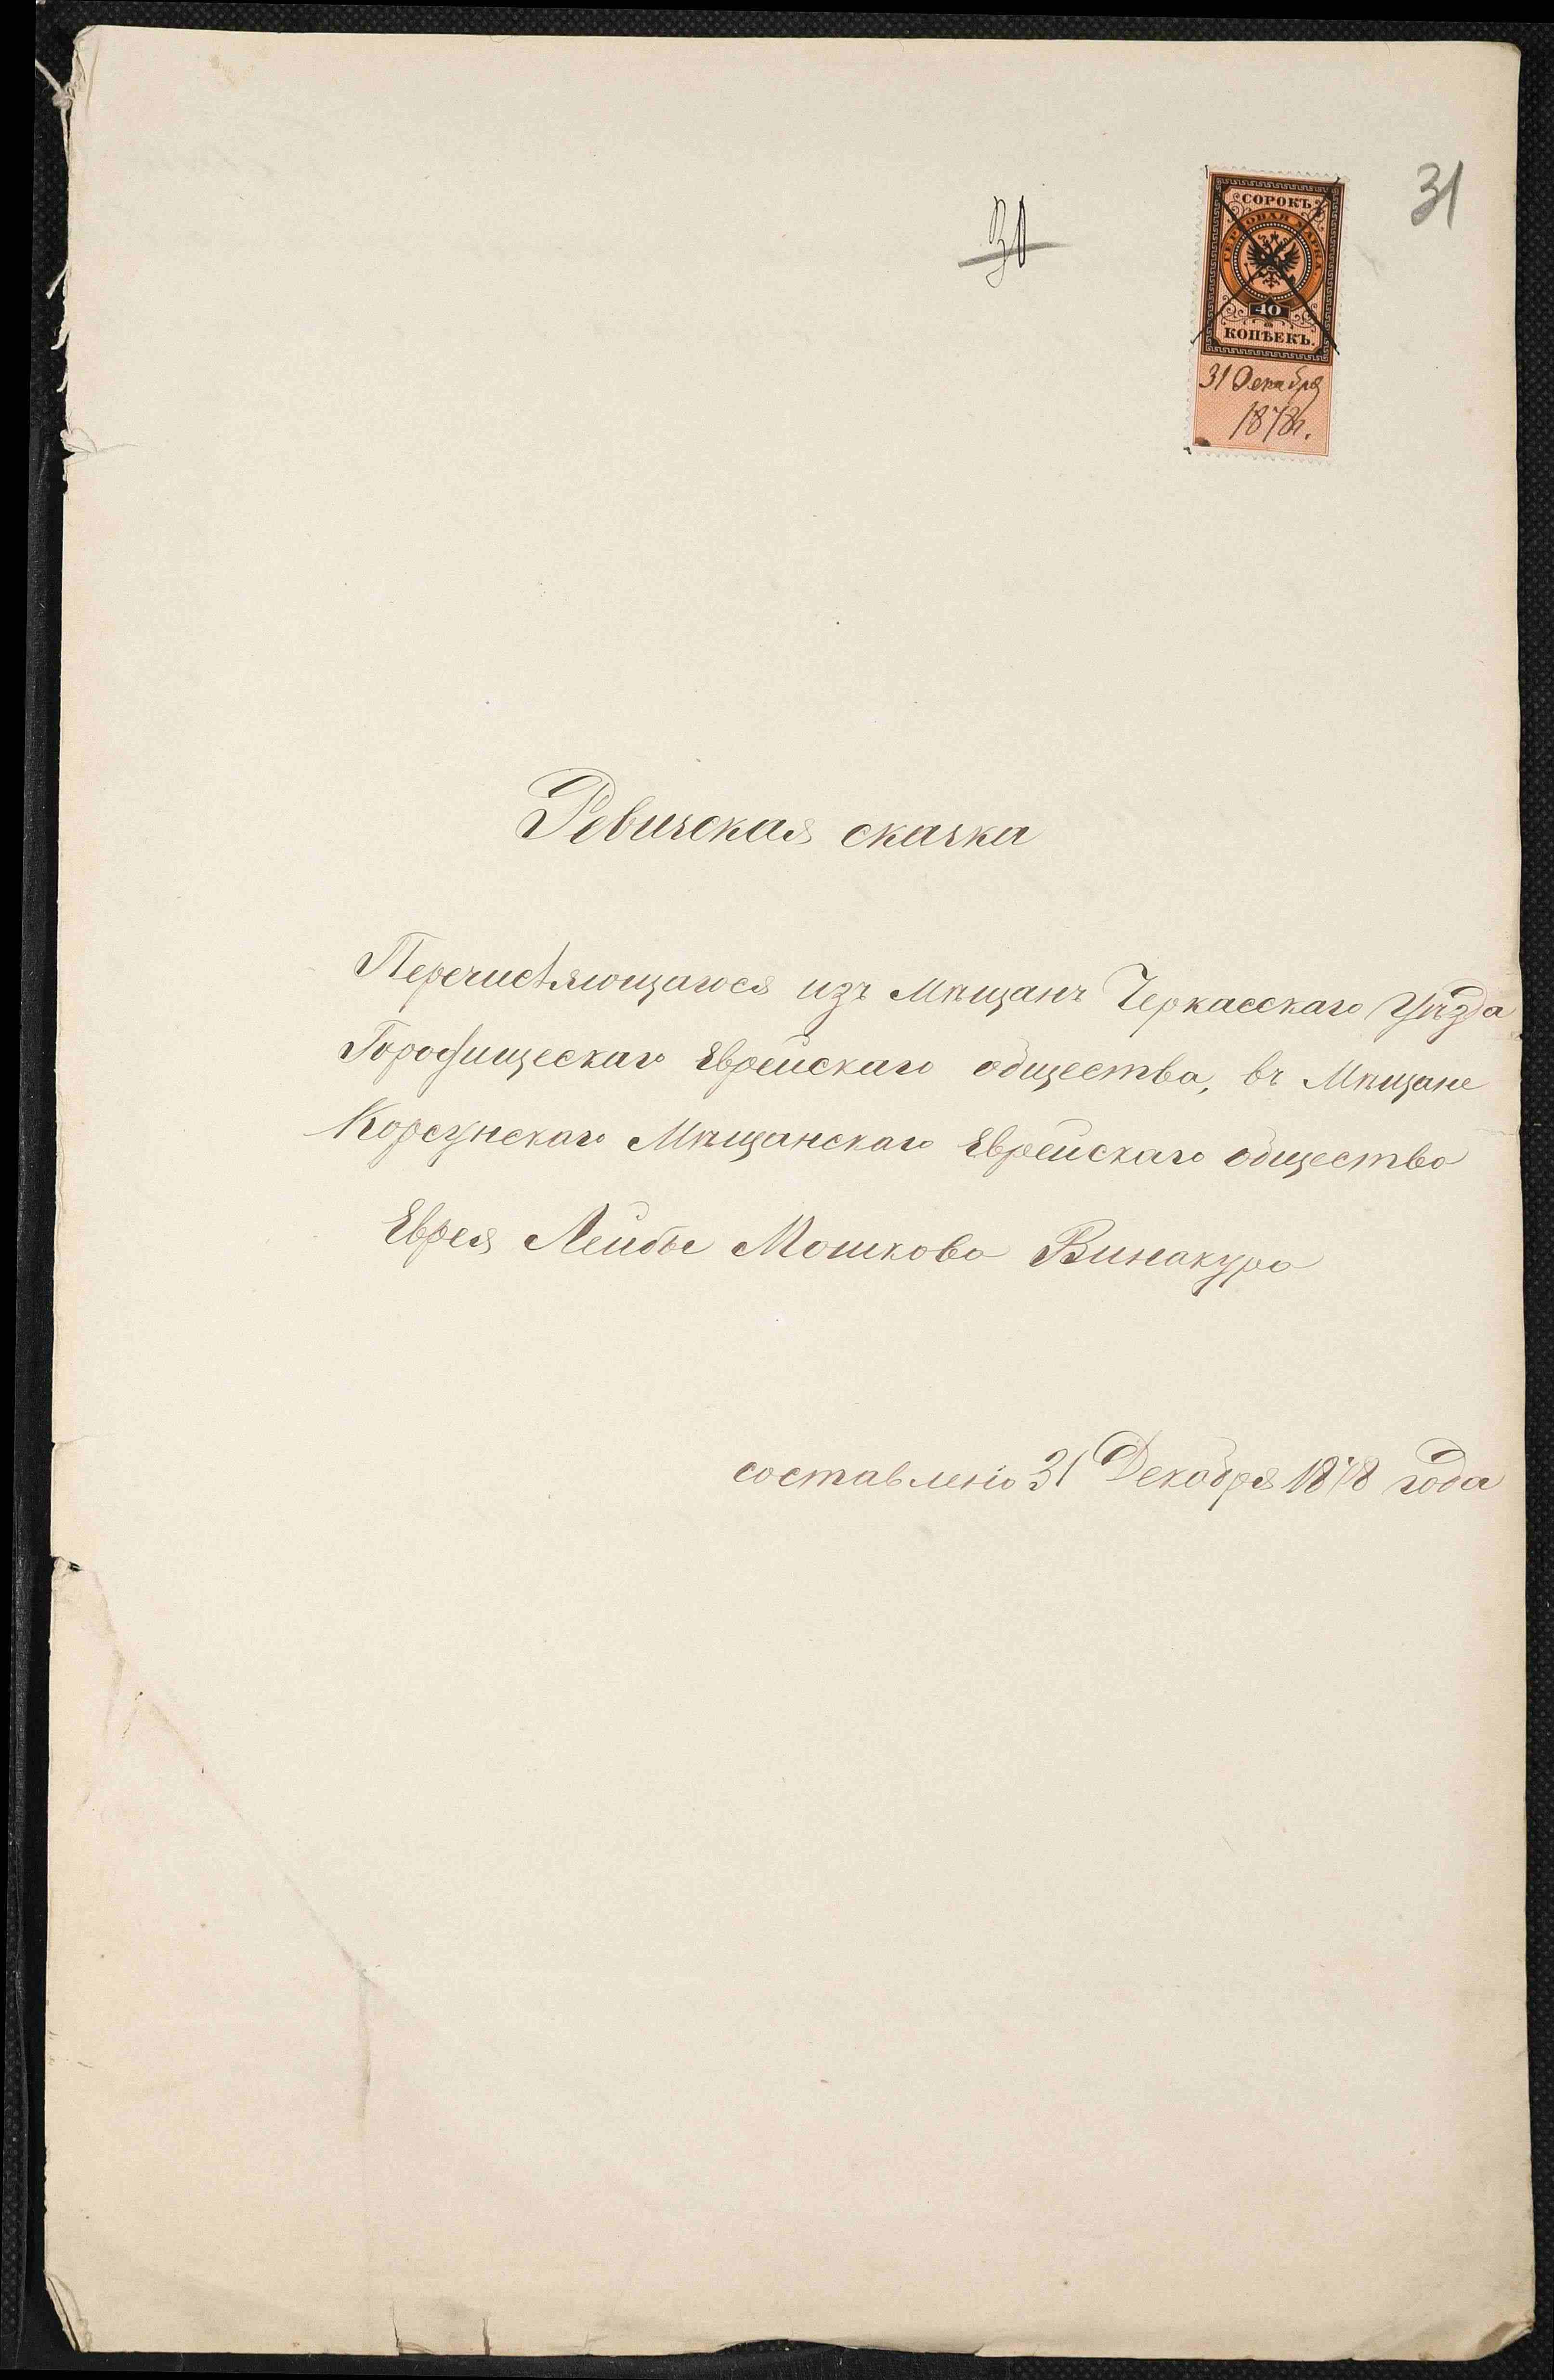 31
30
СОРОКЪ
ГЕРБОВАЯ МАРКА
40
КОПѢЕКЪ.
31 Декабря
1878г.
Ревизская сказка
Перечисляющагося изъ Мѣщанъ Черкасскаго Уѣзда
Городищескаго Еврейскаго общества, въ Мѣщане
Корсунскаго Мѣщанскаго Еврейскаго общества
Еврея Лейбы Мошкова Винакура
составлено 31 Декабря 1878 года